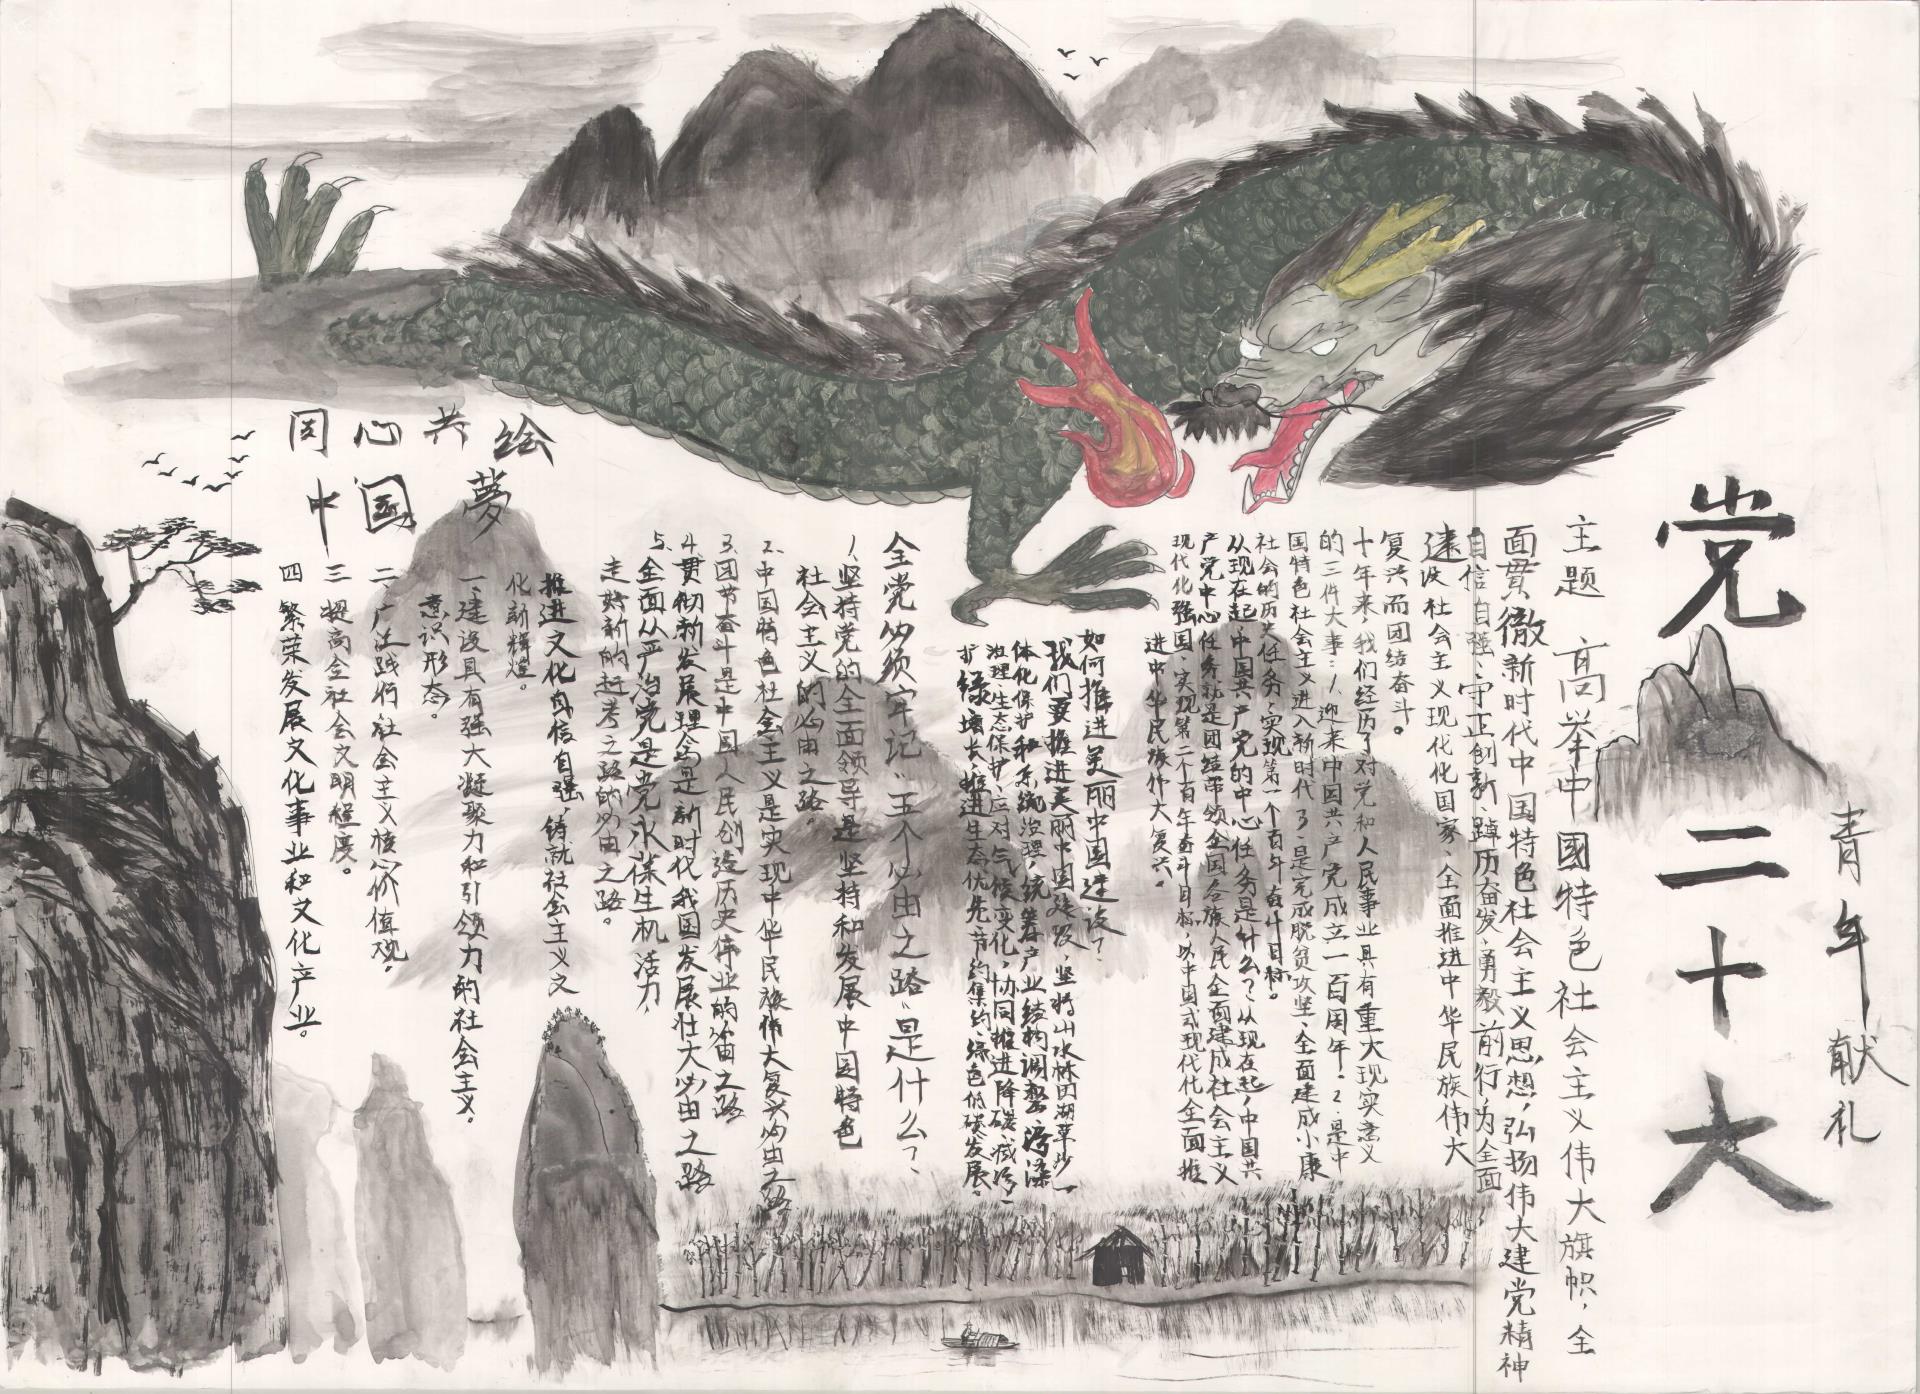 党二十大
青年献礼
主题 高举中國特色社会主义伟大旗帜，全
面贯徹新时代中国特色社会主义思想，弘扬伟大建党精神
自信自强、守正创新，踔厉奋发、勇毅前行，为全面
建设社会主义现代化国家、全面推进中华民族伟大
复兴而团结奋斗。
十年来，我们经历了对党和人民事业具有重大现实意义
的三件大事：1.迎来中国共产党成立一百周年。2.是中
国特色社会主义进入新时代了3.是完成脱贫攻坚、全面建成小康
社会的历史任务，实现第一个百年奋斗目标。
从现在起，中国共产党的中心任务是什么？从现在起，中国共
产党中心任务就是团结带领全国各族人民全面建成社会主义
现代化强国、实现第二个百年奋斗目标，以中国式现代化全面推
进中华民族伟大复兴。
如何推进美丽中国建设？
我们要推进美丽中国建设，坚持山水林田湖草沙一
体化保护和系统治理，统筹产业结构调整、污染
治理、生态保护、应对气候变化，协同推进降碳、减污、
扩绿、增长，推进生态优先、节约集约、绿色低碳发展。
全党必须牢记“五个必由之路”是什么？
1.坚持党的全面领导是坚持和发展中国特色
社会主义的必由之路。
2.中国特色社会主义是实现中华民族伟大复兴必由之路
3.团节奋斗是中国人民创造历史伟业的必由之路
4.贯彻新发展理念是新时代我国发展壮大必由之路
5.全面从严治党是党永葆生机活力，
走好新的赶考之路的必由之路。
推进文化自信自强 铸就社会主义文
化新辉煌。
一、建设具有强大凝聚力和引领力的社会主义
意识形态。
二 广泛践行社会主义核心价值观，
三 提高全社会文明程度。
四 繁荣发展文化事业和文化产业。
同心共绘
中国夢